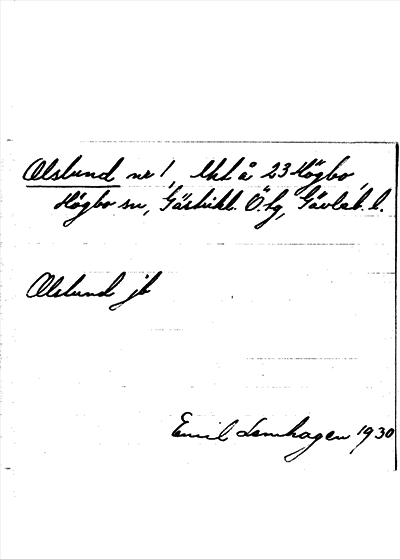 Olslund nr 1, Uht å 23 Högbo,
Högbo sn, Gästrikl. Ö. lg, Gävleb. l.
Olslund jb
Emil Lemhagen 1930